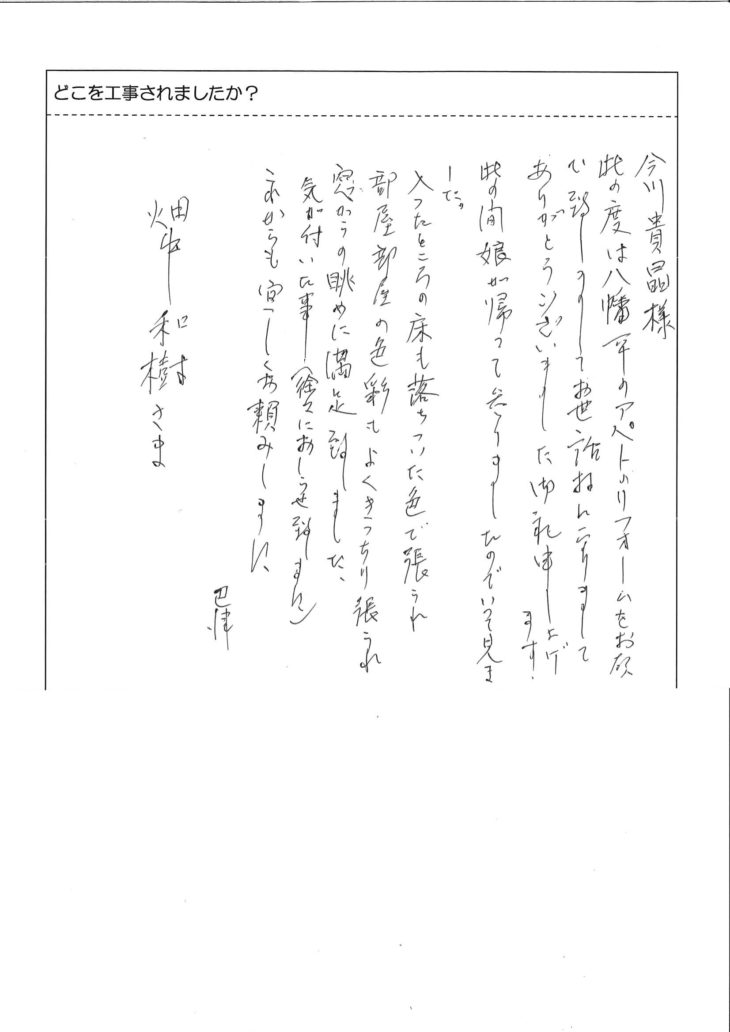 どこを工事されましたか？
今川貴晶様
此の度は八幡平のアパートのリフォームをお願
い致しまして お世話ねになりまして
ありがとうございました 御礼申し上げ
ます！
此の間娘が帰って参りましたのでいっそ見ま
した。
入ったところの床も落ちついた色で張られ
部屋部屋の色彩もよくきっちり張られ
窓からの眺めに満足致しました、
気が付いた事 (徐々におしらせ致します)
これからも宜しくお頼みします、
畑中和樹さま